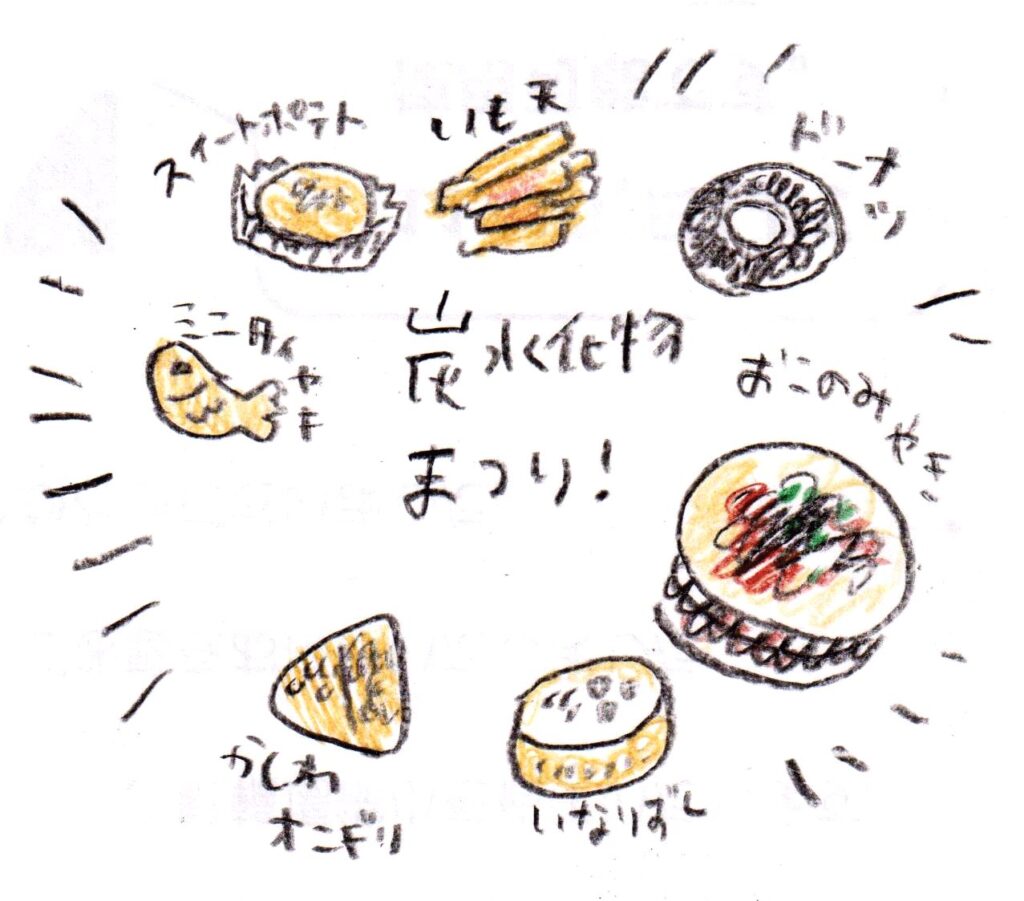 スイートポテト
いも天
ドーナツ
ミニタイヤキ
炭水化物
まつり!
おこのみやき
かしわ
オニギリ
いなりずし